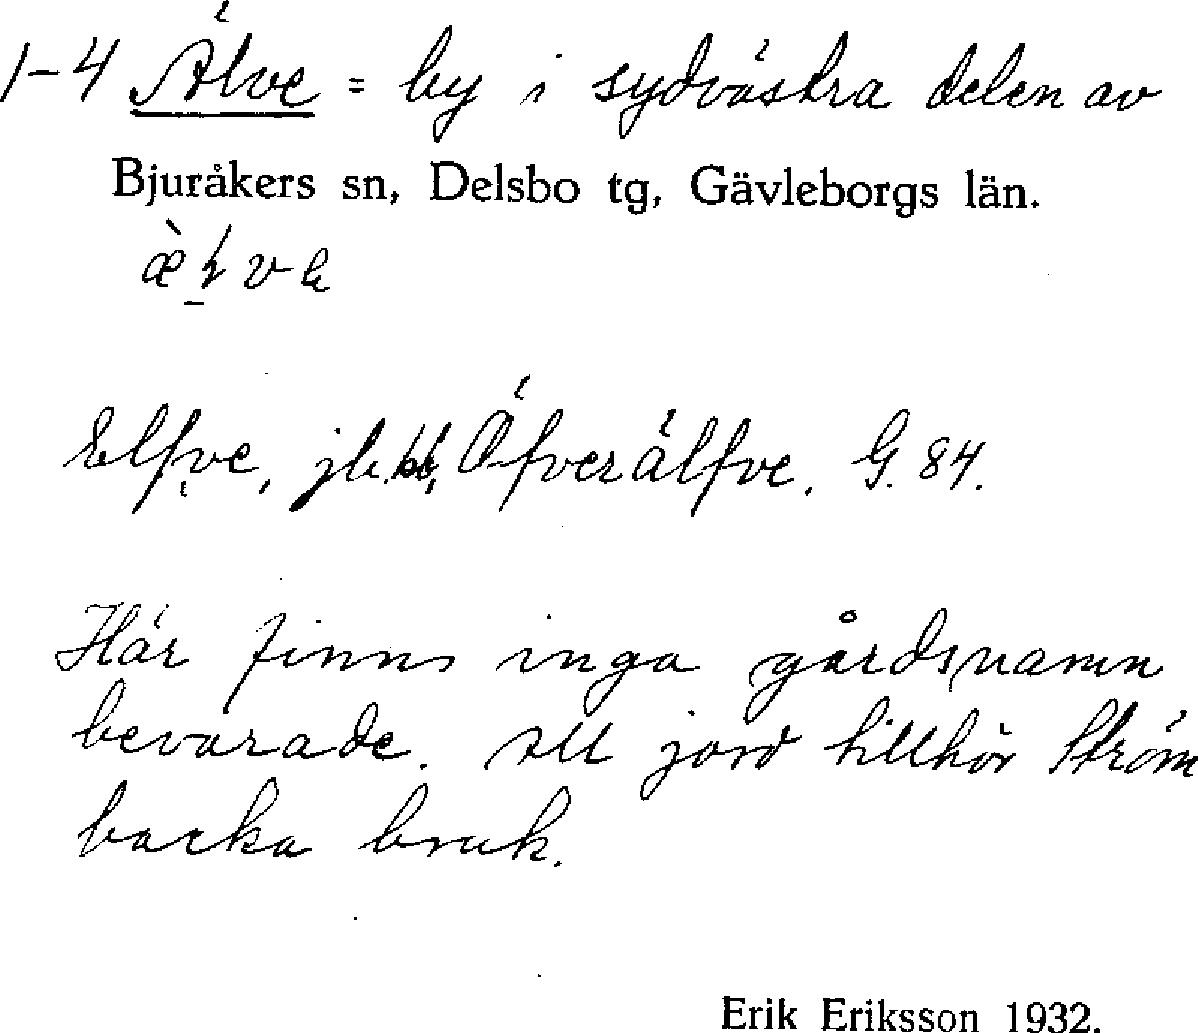 1-4 Älve = by i sydvästra delen av
Bjuråkers sn, Delsbo tg, Gävleborgs län.
Elfve, jb. Öfverälfve. G. 84.
Här finns inga gårdsnamn
bevarade. All jord tillhör Ström
backa bruk.
Erik Eriksson 1932.